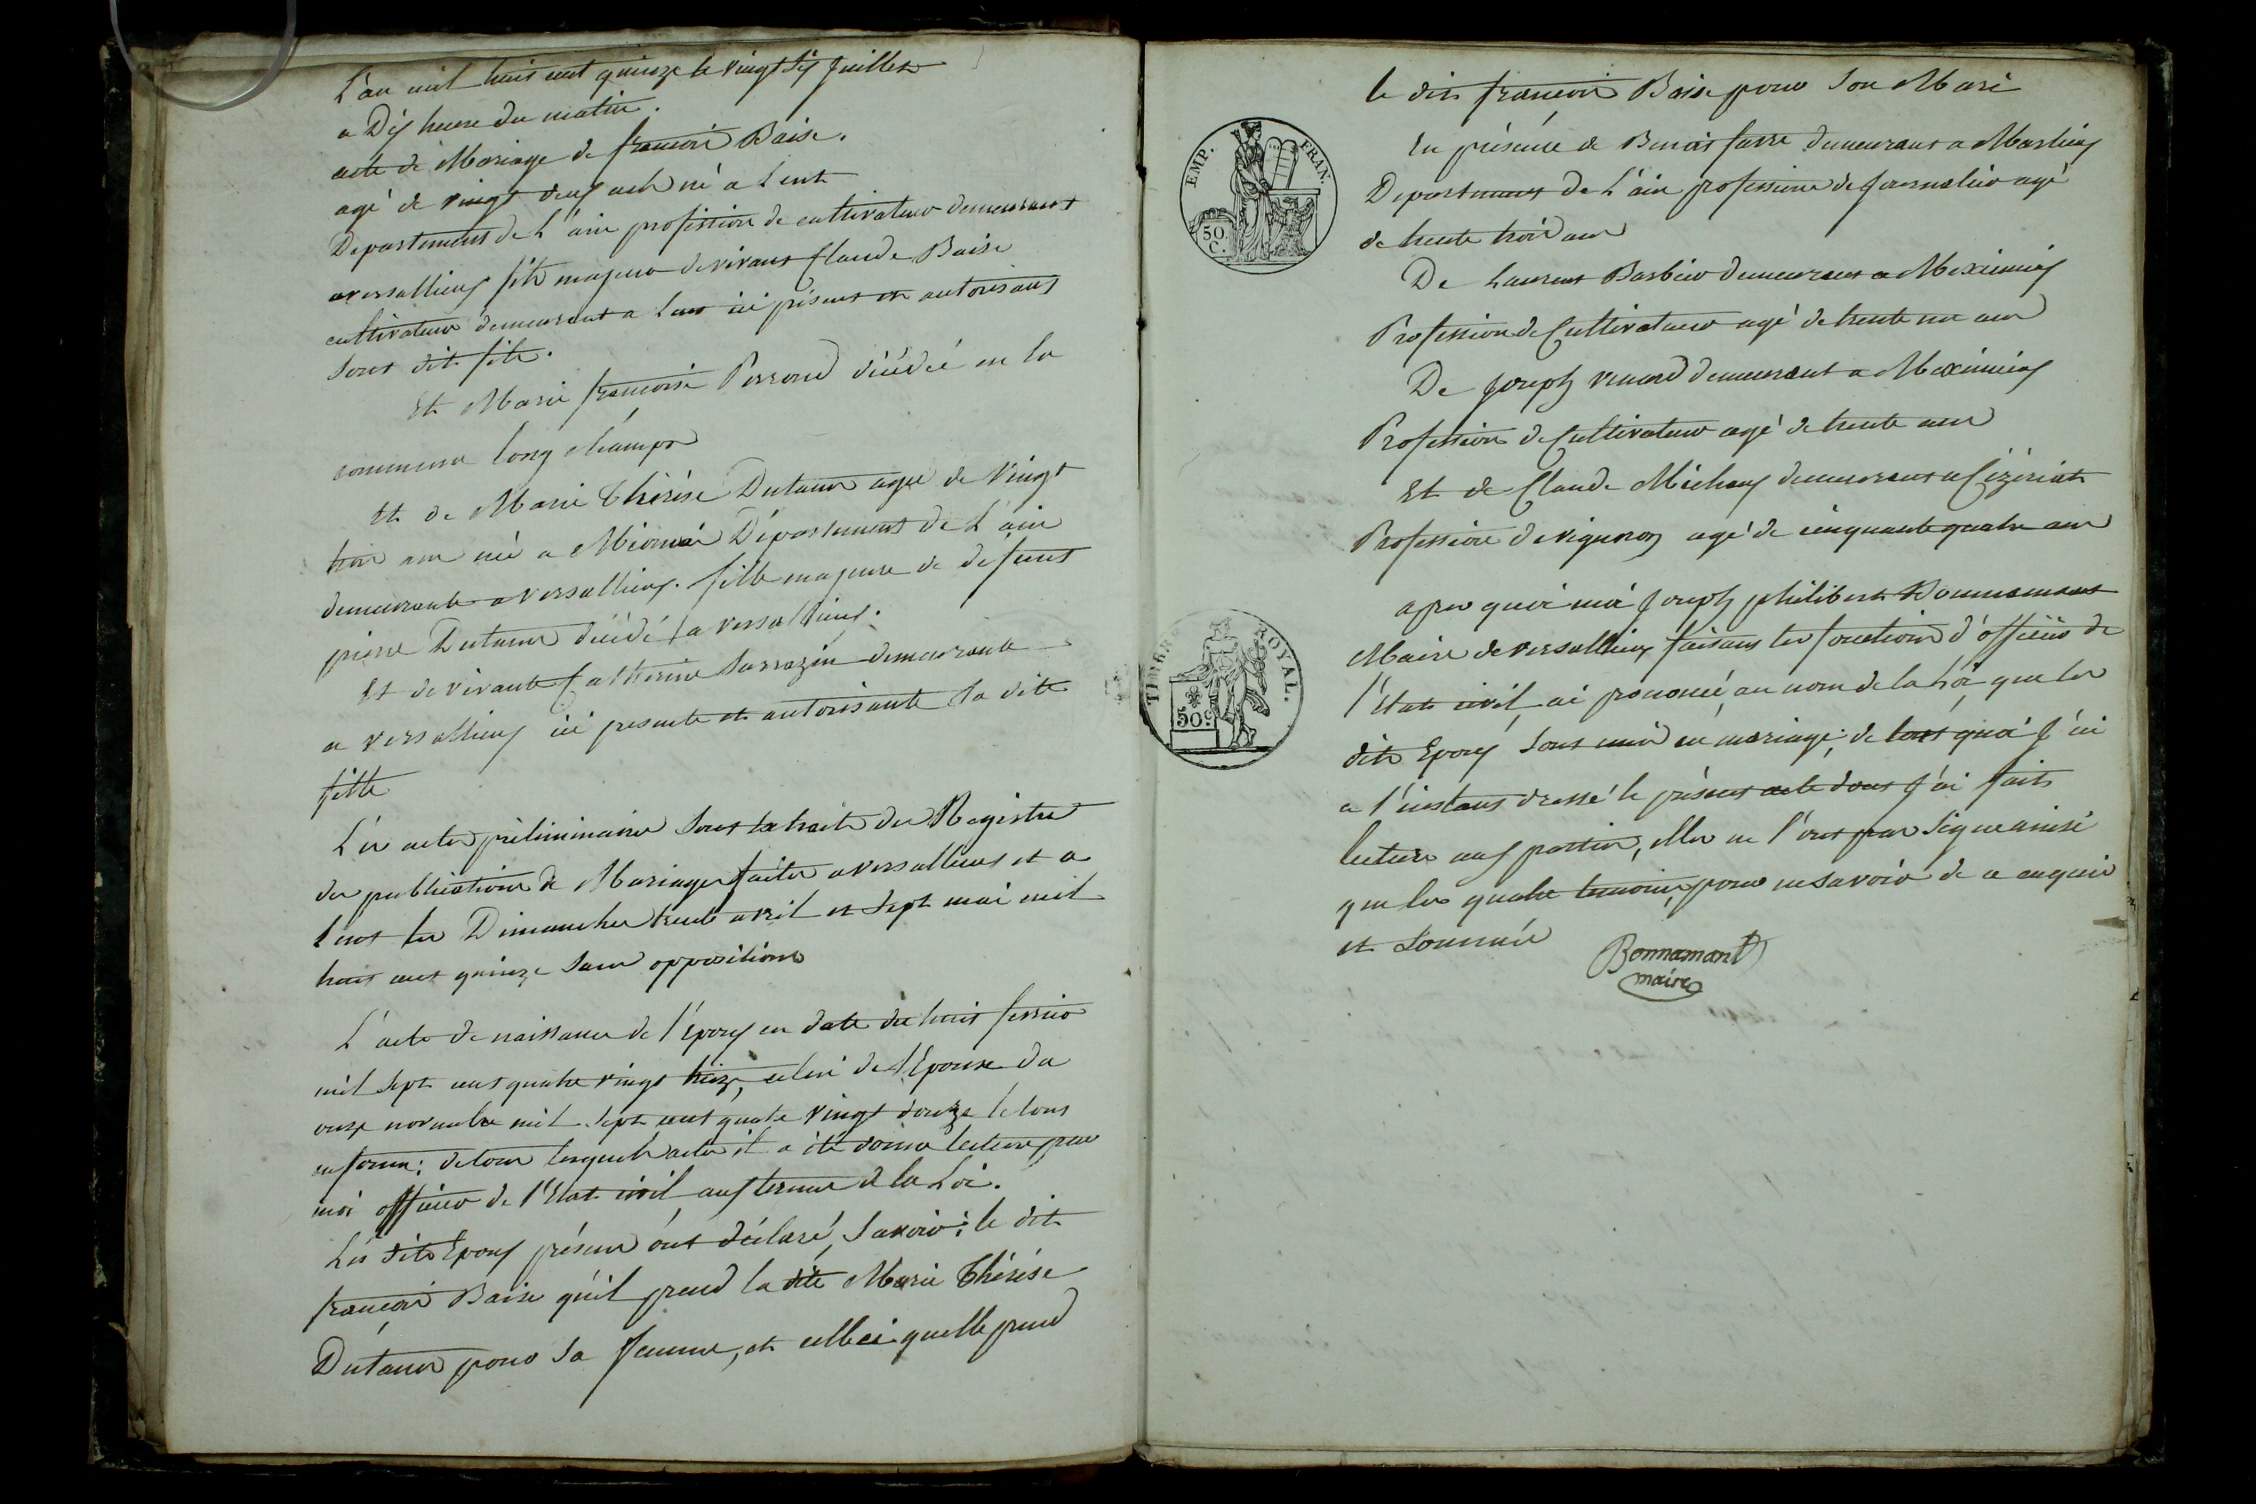 L'an mil huit cent quinze le vingt six juillet
a Dix heure du matin.
acte de Mariage de francois Baise.
agé de vingt deux ans né a Lent
Departement de L'ain profission de cultivateur demeurant
a versallieux fils majeur de vivant Claude Baise
cultivateur demeurant a Lent ici présent et autorisant
sont dit fils.
Et Marie francoise Perroud décédée en la
commune long champs
Et de Marie thérése Dutanr agée de vingt
trois ans né a Mionai Département de L'ain
demeurante a versallieux. fille majeure de defunt
pierre Dutanr décédé a versallieux.
Et de vivante Catherine Sarrazin demeurante
a versallieux ici presente et autorisante sa dite
fille
Lés actes préliminaires sont extraits des Registre
des publications de Mariages faites a versallieux et a
Lent les Dimanches trente avril et sept mai mil
huit cent quinze sans opposition
L'acte de naissance de l'époux en date du huit fevrier
mil sept cent quatre vingt treize, celui de l'Epouse du
onze novembre mil sept cent quatre vingt douze le tous
en forme: de tous lesquels actes il a été donné lecture par
moi officier de l'Etat civil aux termes de la Loi.
Lés dits Epoux présens ont déclaré, savoir: le dit
francois Baise qu'il prend la dite Marie thérése
Dutanr pour sa femme, et celle ci quelle prend
le dit francois Baise pour son Mari
EMP. FRAN.
50 C.
En présence de Benoit farre demeurant a Marlieux
Departement de L'ain profession de journalier agé
de trente trois ans
De Laurent Barbier demeurant a Meximieux
Profession de Cultivateur agé de trente un ans
De Joseph renard demeurant a Meximieux
Profession de Cultivateur agé de trente ans
Et de Claude Michaux demeurant a Cizériat
Profession de vigneron agé de cinquante quatre ans
TIMBRE ROYAL.
50 c.
apres quoi moi Joseph philibert Bonnamant
Maire de versallieux faisant les fonctions d'officier de
l'Etat civil ai prononcé, au nom de la Loi que les
dits Epoux sont unis en mariage; de tout quoi j'ai
a l'instant dressé le présent acte dont j'ai fait
lecture aux parties, elles ne l'ont pas signe ainsi
que les quatre temoins, pour ne savoir de ce enquis
et sommés
Bonnamant
maire